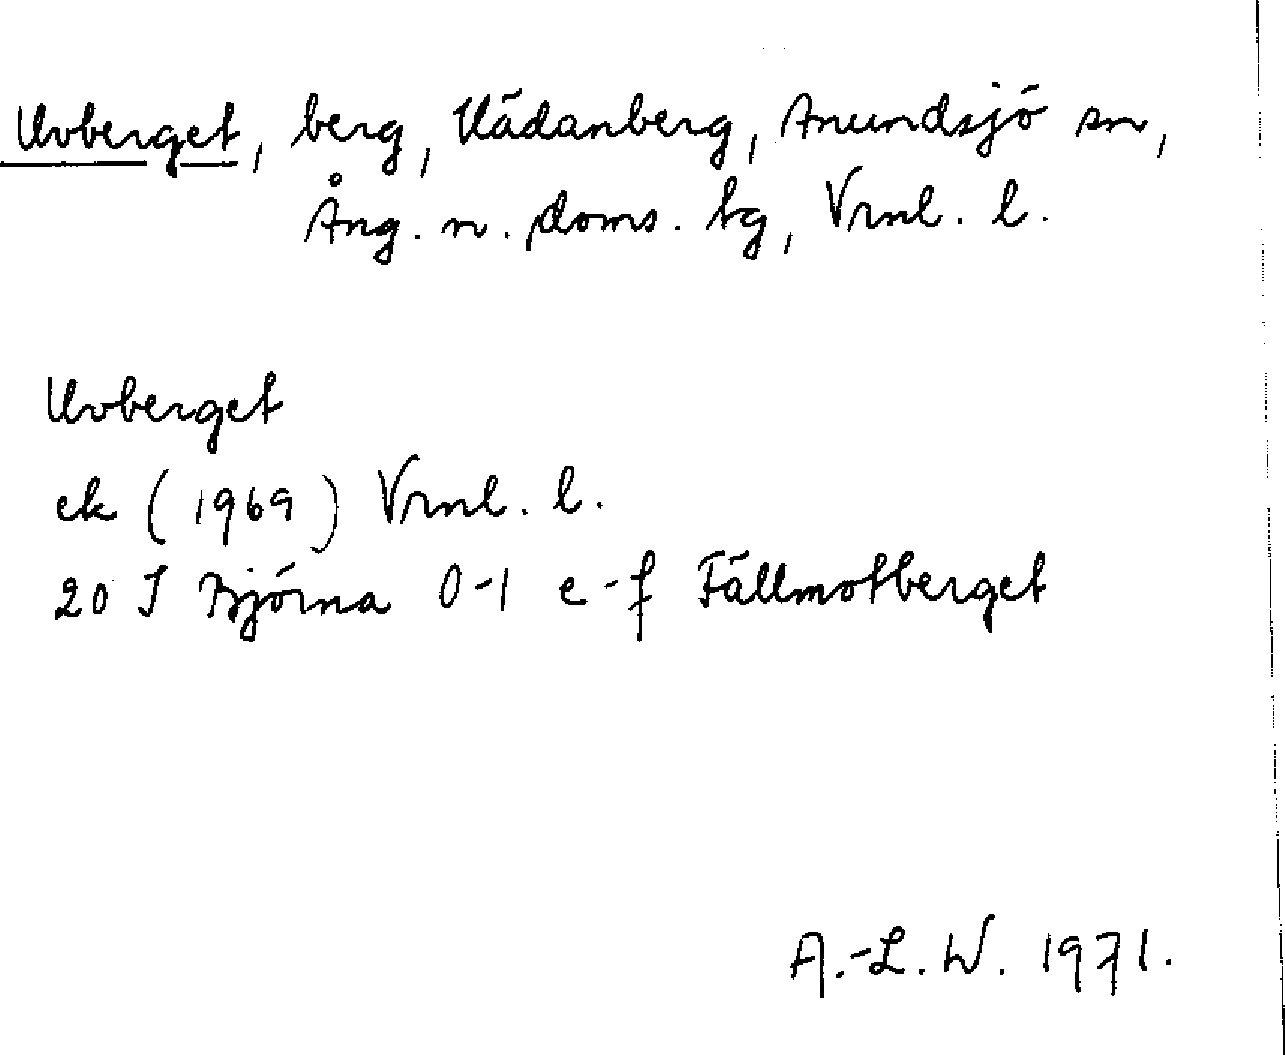 Uvberget, berg, Vädanberg, Anundsjö sn,
Ång. n. doms. tg, Vrnl. l.
Uvberget
ek (1969) Vrnl. l.
20 J Björna 0-1 e-f Fällmotberget
A.-L. W. 1971.